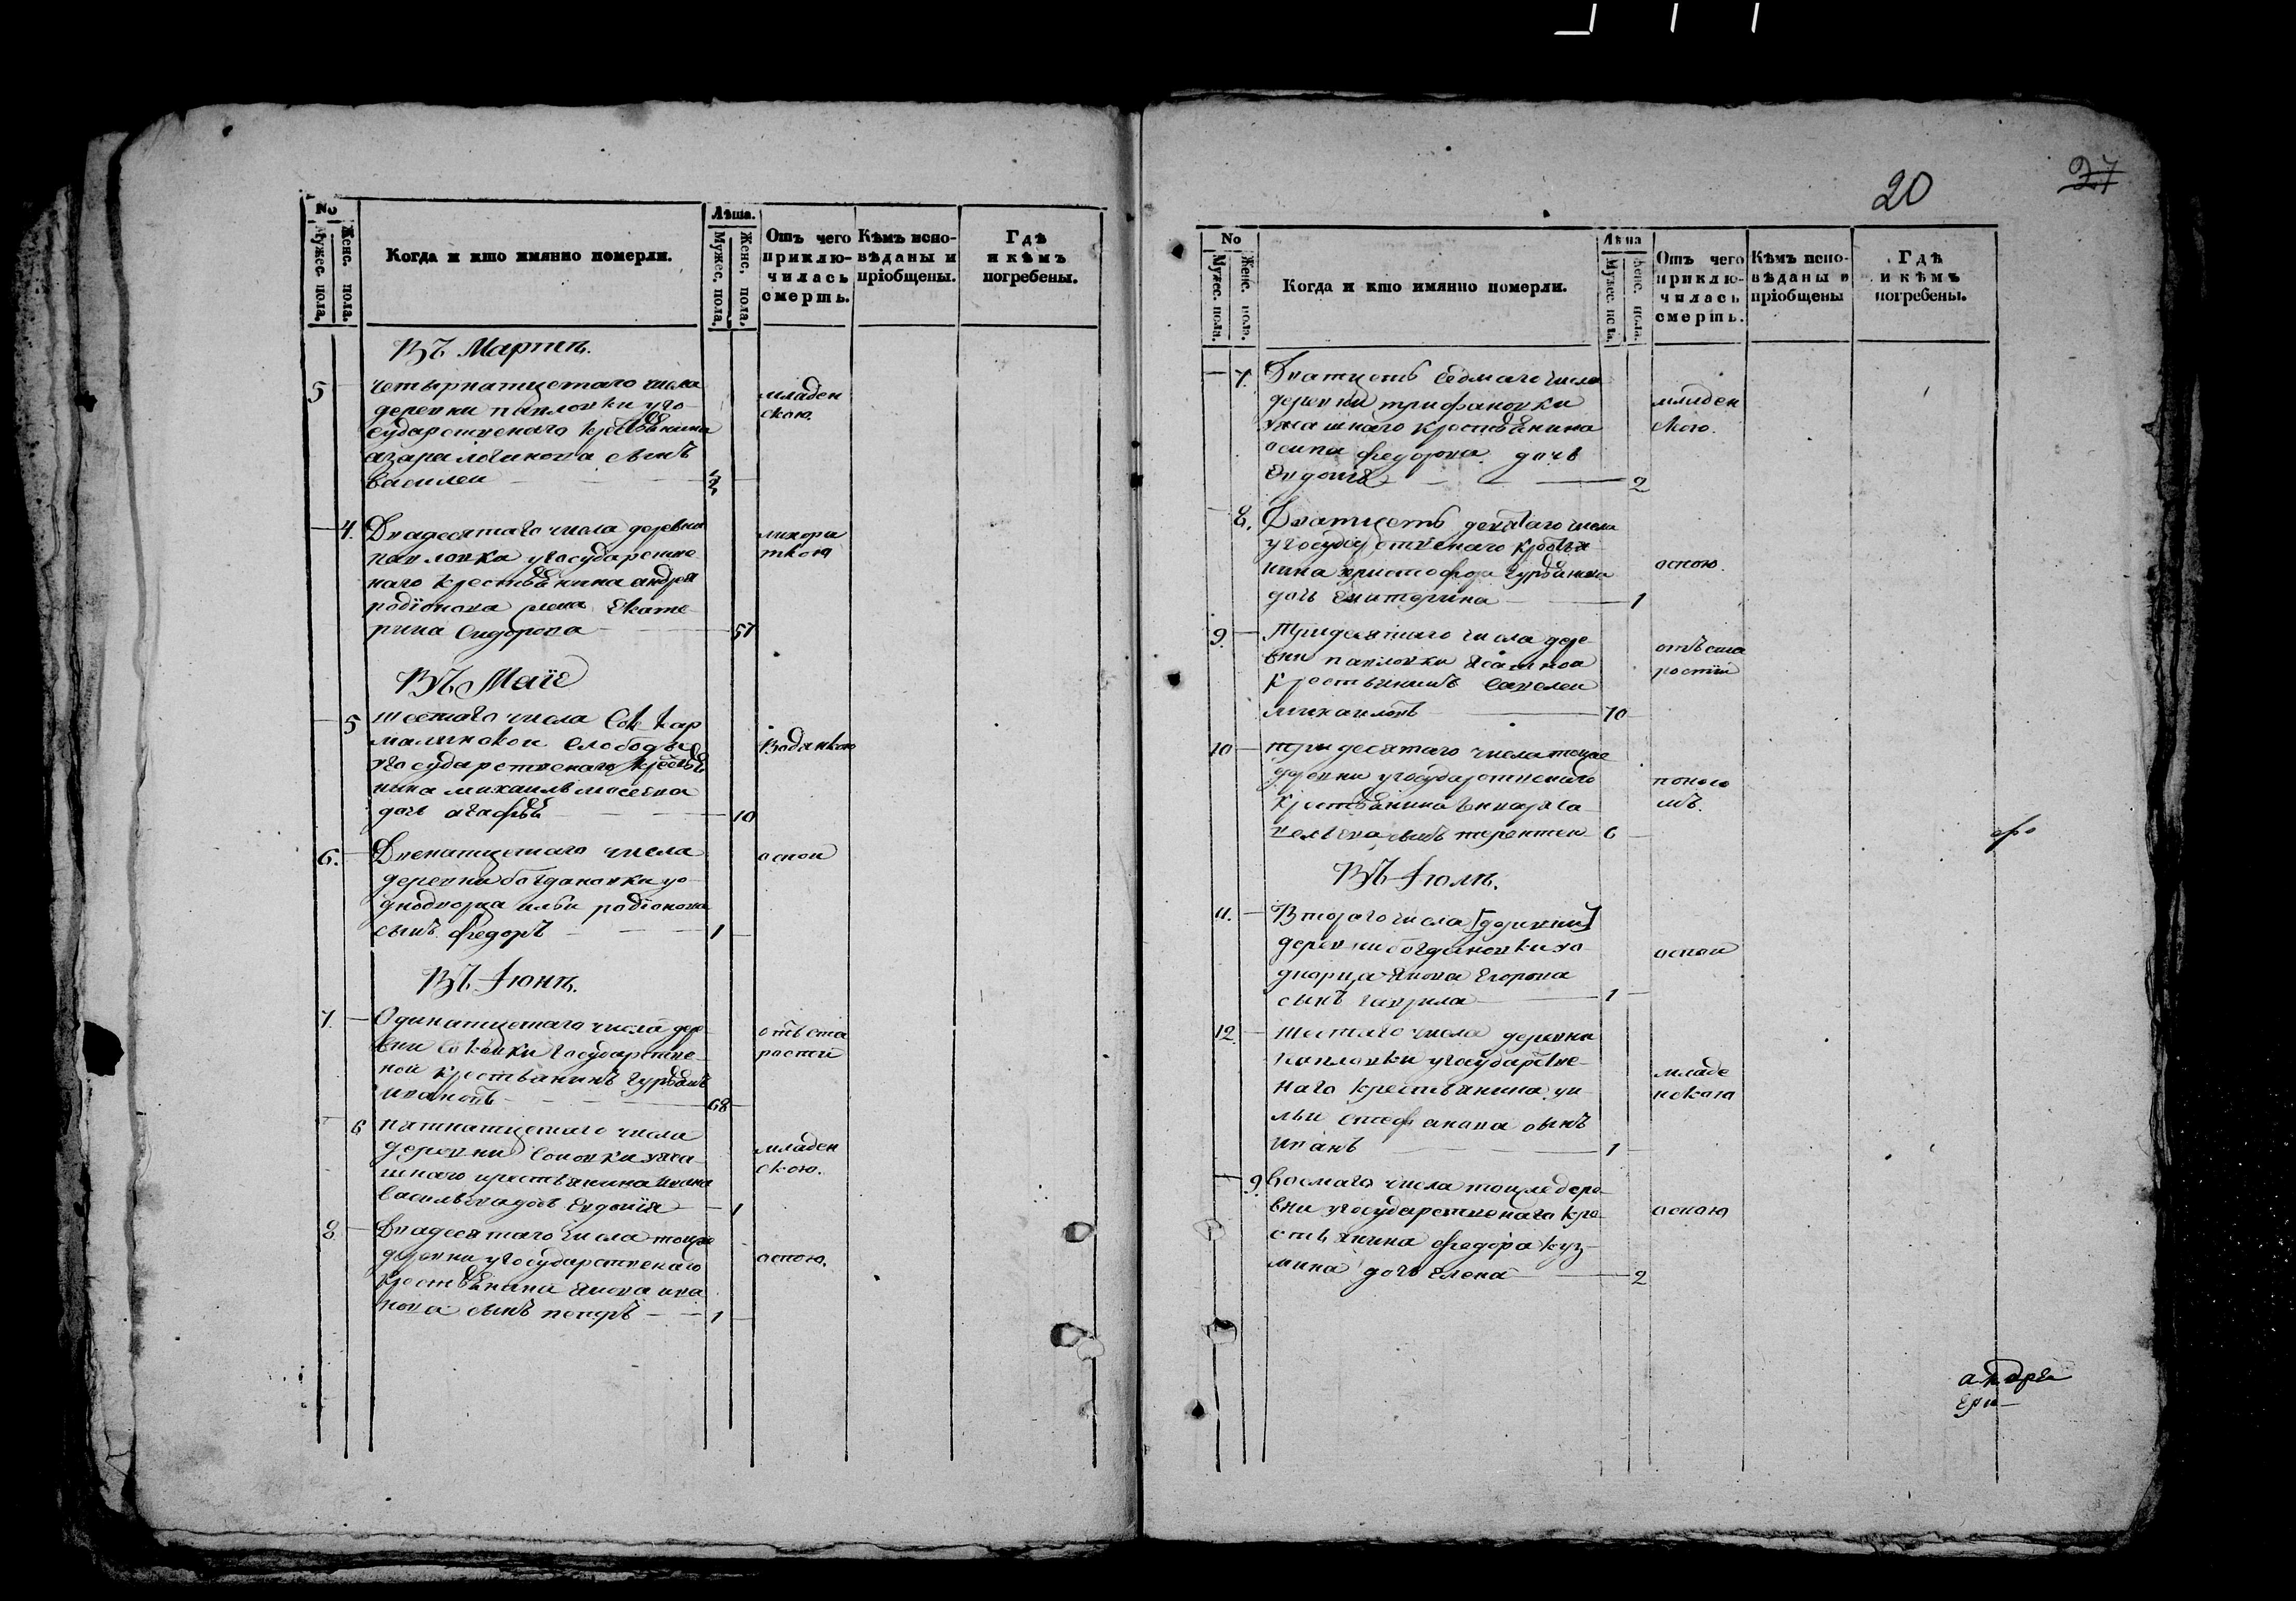 No
Мужес. пола.
Женс. пола.
Когда и кто имянно померли.
Лѣта.
Мужес. пола.
Женс. пола.
Отъ чего приключилась смерть.
Кѣмъ исповѣданы и пріобщены.
Гдѣ и кѣмъ погребены.
Въ Мартѣ.
5
четырнатцетаго числа
деревни павловки уго-
сударственаго крестьянина
азара логинова сынъ
василеи
младен
скою.
4.
Двадесятаго числа деревни
павловки угосударстве
наго крестьянина андрея
родіонова жена Екате
рина Сидорова 57
лихора
ткою
Въ Маіе
5
шестаго числа
малинскои слободы
угосударственаго крестья
нина михаила мосеева
дочь агафья 10
Водянкою
6.
Двенатцетаго числа
деревни богдановки уо-
днодворца ильи родіонова
сынъ федоръ 1
оспои
Въ Іюнѣ.
7.
Одинатцетаго числа дере-
вни государстве-
нои крестьянинъ гурьянъ
ивановъ 68
отъ ста
рости
6
пятнатцетаго числа
деревни
шнаго крестьянина ивана
васильева дочь Евдокія 1
младен
скою.
8.
Двадесятаго числа тоиже
деревни угосударственаго
крестьянина якова ива
нова сынъ петръ 1
оспою.
20
27
No
Мужес. пола.
Женс. пола.
Когда и кто имянно померли.
Лѣта
Мужес. пола.
Женс. пола.
Отъ чего приключилась смерть.
Кѣмъ исповѣданы и пріобщены
Гдѣ и кѣмъ погребены.
7.
Дватцеть седмаго числа
деревни трифановки
крестьянина
осипа федорова дочь
Евдокія 2
младен
скою.
8.
Дватцеть девятаго числа
угосударственаго крестья-
нина христофора гурьянова
дочь Екатерина 1
оспою.
9.
Тридесятаго числа дере-
вни павловки
крестьянинъ савелеи
михаиловъ 70
отъ ста
рости
10
тридесятаго числа тоиже
деревни угосударственаго
крестьянина са
вельева сынъ терентеи 6
поносо
мъ.
Въ Іюлѣ.
11.
Втораго числа [деревни]
деревни богдановки уо-
дворца якова Егорова
сынъ гаврила 1
оспои
12.
шестаго числа деревни
павловки угосударстве-
наго крестьянина уи-
льи стефанова сынъ
иванъ 1
младе
нскою
9.
Восмаго числа тоиже дере-
вни угосударственаго кре-
стьянина федора куз-
мина дочь Елена 2
оспою